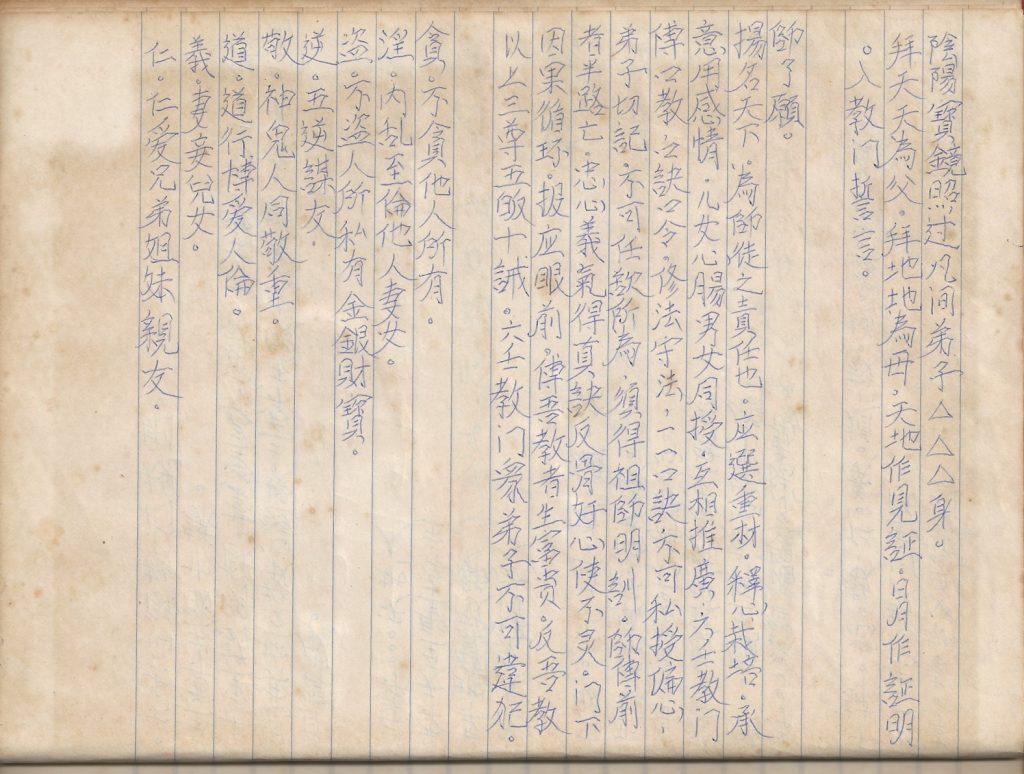 陰陽寶鏡照过凡间弟子△△△身。
拜天天為父。拜地地為母。天地作見証。日月作証明
。入教门誓言。
師了願。
揚名天下。為師徒之責任也。应選重材。釋心栽培。承
意用感情。儿女心腸男女同授。互相推廣。六壬教门
傳口教。之訣口令。修法守法。一一口訣。不可私授偏心。
弟子切記。不可任欺所為。須得祖師明訓。師傳前
者半路亡。忠心義氣得真訣反骨奸心使不灵。门下
因果循环。报应眼前。傳吾教者生富贵。反吾教
以上三尊五皈十誡。六壬教门眾弟子不可違犯。
貪。不貪他人所有。
淫。內乱至倫他人妻女。
盜。不盜人所私有金銀財寶。
逆。五逆謀友。
敬。神鬼人同敬重。
道。道行博爱人倫。
義。妻妾兒女。
仁。仁爱兄弟姐妹親友。